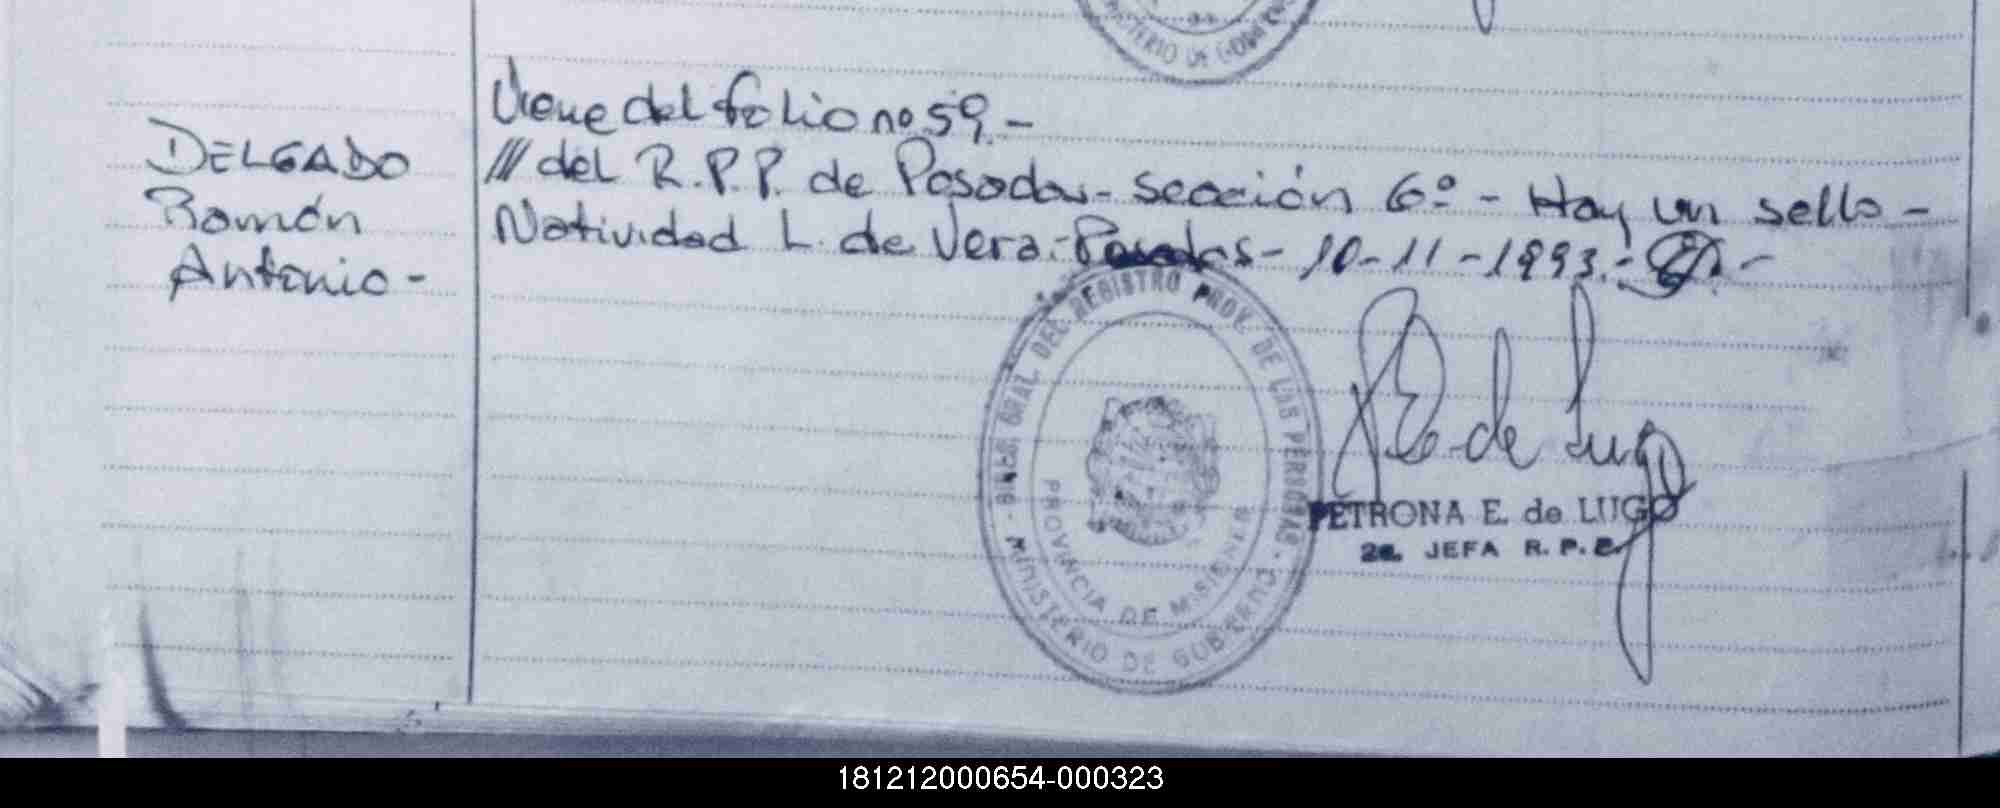 MINISTERIO DE GOBIERNO
Viene del folio no 59.-
DELGADO
Ramón
Antonio-
/// del R.P.P. de Posadas-sección 6º- Hay un sello-
Natividad L. de Vera.-Posadas- 10-11-1993.-
DIREC. GRAL. DEL REGISTRO PROV. DE LAS PERSONAS.
PROVINCIA DE MISIONES
MINISTERIO DE GOBIERNO
E. de Lugo
PETRONA E. de LUGO
2a. JEFA R.P.P.
181212000654-000323